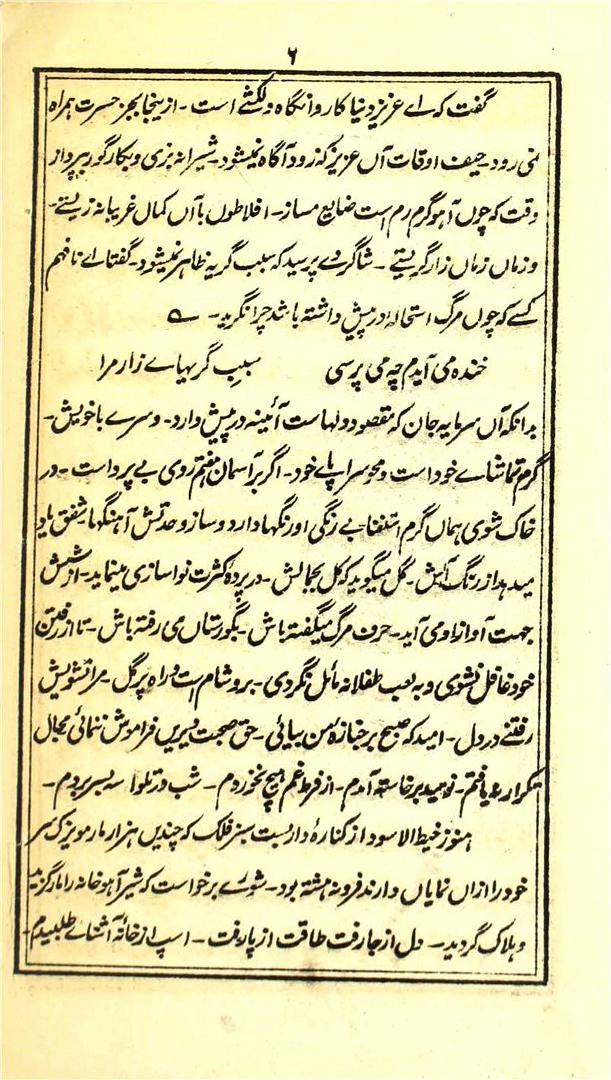 ۶
گفت کہ اے عزیز دنیا کاروانگاہ دلکشے است - ازینجا بجز حسرت ہمراہ
نمی رود - حیف اوقات آں عزیز کہ زود آگاہ نمیشود - شیرانہ بزی و بکار گور بپرداز
وقت کہ چوں آہو گرم رم است ضایع مساز - افلاطوں باآں کماں غریبانہ زیستے -
و زماں زماں زار گریستے - شاگردے پرسید کہ سبب گریہ ظاہر نمیشود - گفتا اے نافہم
کسے کہ چوں مرگ استحالہ درپیش داشتہ باشد چرا نگرید - ؎
خندہ می آیدم چہ می پرسی سببِ گریہاے زار مرا
برانکہ آں سرمایہ جان کہ مقصود دلہاست آئینہ درپیش دارد - و سرے باخویش -
گرم تماشاے خود است و محو سراپاے خود - اگر بر آسمان ہفتم روی بے پرواست - در
خاک شوی ہماں گرم استغنا بے رنگی او رنگہا دارد و ساز وحدتش آہنگہا شفق یاد
میدہد از رنگ آلش - گل میگوید کہ کل بجمالش - در پردہ کثرت نواسازی مینماید - از شش
جہت آواز او می آید - حرف مرگ میگفتہ باش - بگورستاں می رفتہ باش - تا از رفتن
خود غافل نشوی و بہ لعب طفلانہ مائل نگردی - بروشام است و راہ پر گل - مرا تشویش
رفتنے در دل - امید کہ صبح بر جنازۂ من بیائی - حق صحبت دیریں فراموش ننمائی مجال
تکرار نیافتم - نومید برخاستہ آمدم - از فرط غم ہیچ نخوردم - شب در تلواسہ بسر بردم -
ہنوز خیط الاسود از کنارۂ داربست سبز فلک کہ چندیں ہزار مار مویزک سر
خود را ازاں نمایاں دارند فرو نہشتہ بود - شورے برخواست کہ شیر آہو خانہ را مار گزید
و ہلاک گردید - دل از جا رفت طاقت از پا رفت - اسپ از خانۂ آشناے طلبیدم -